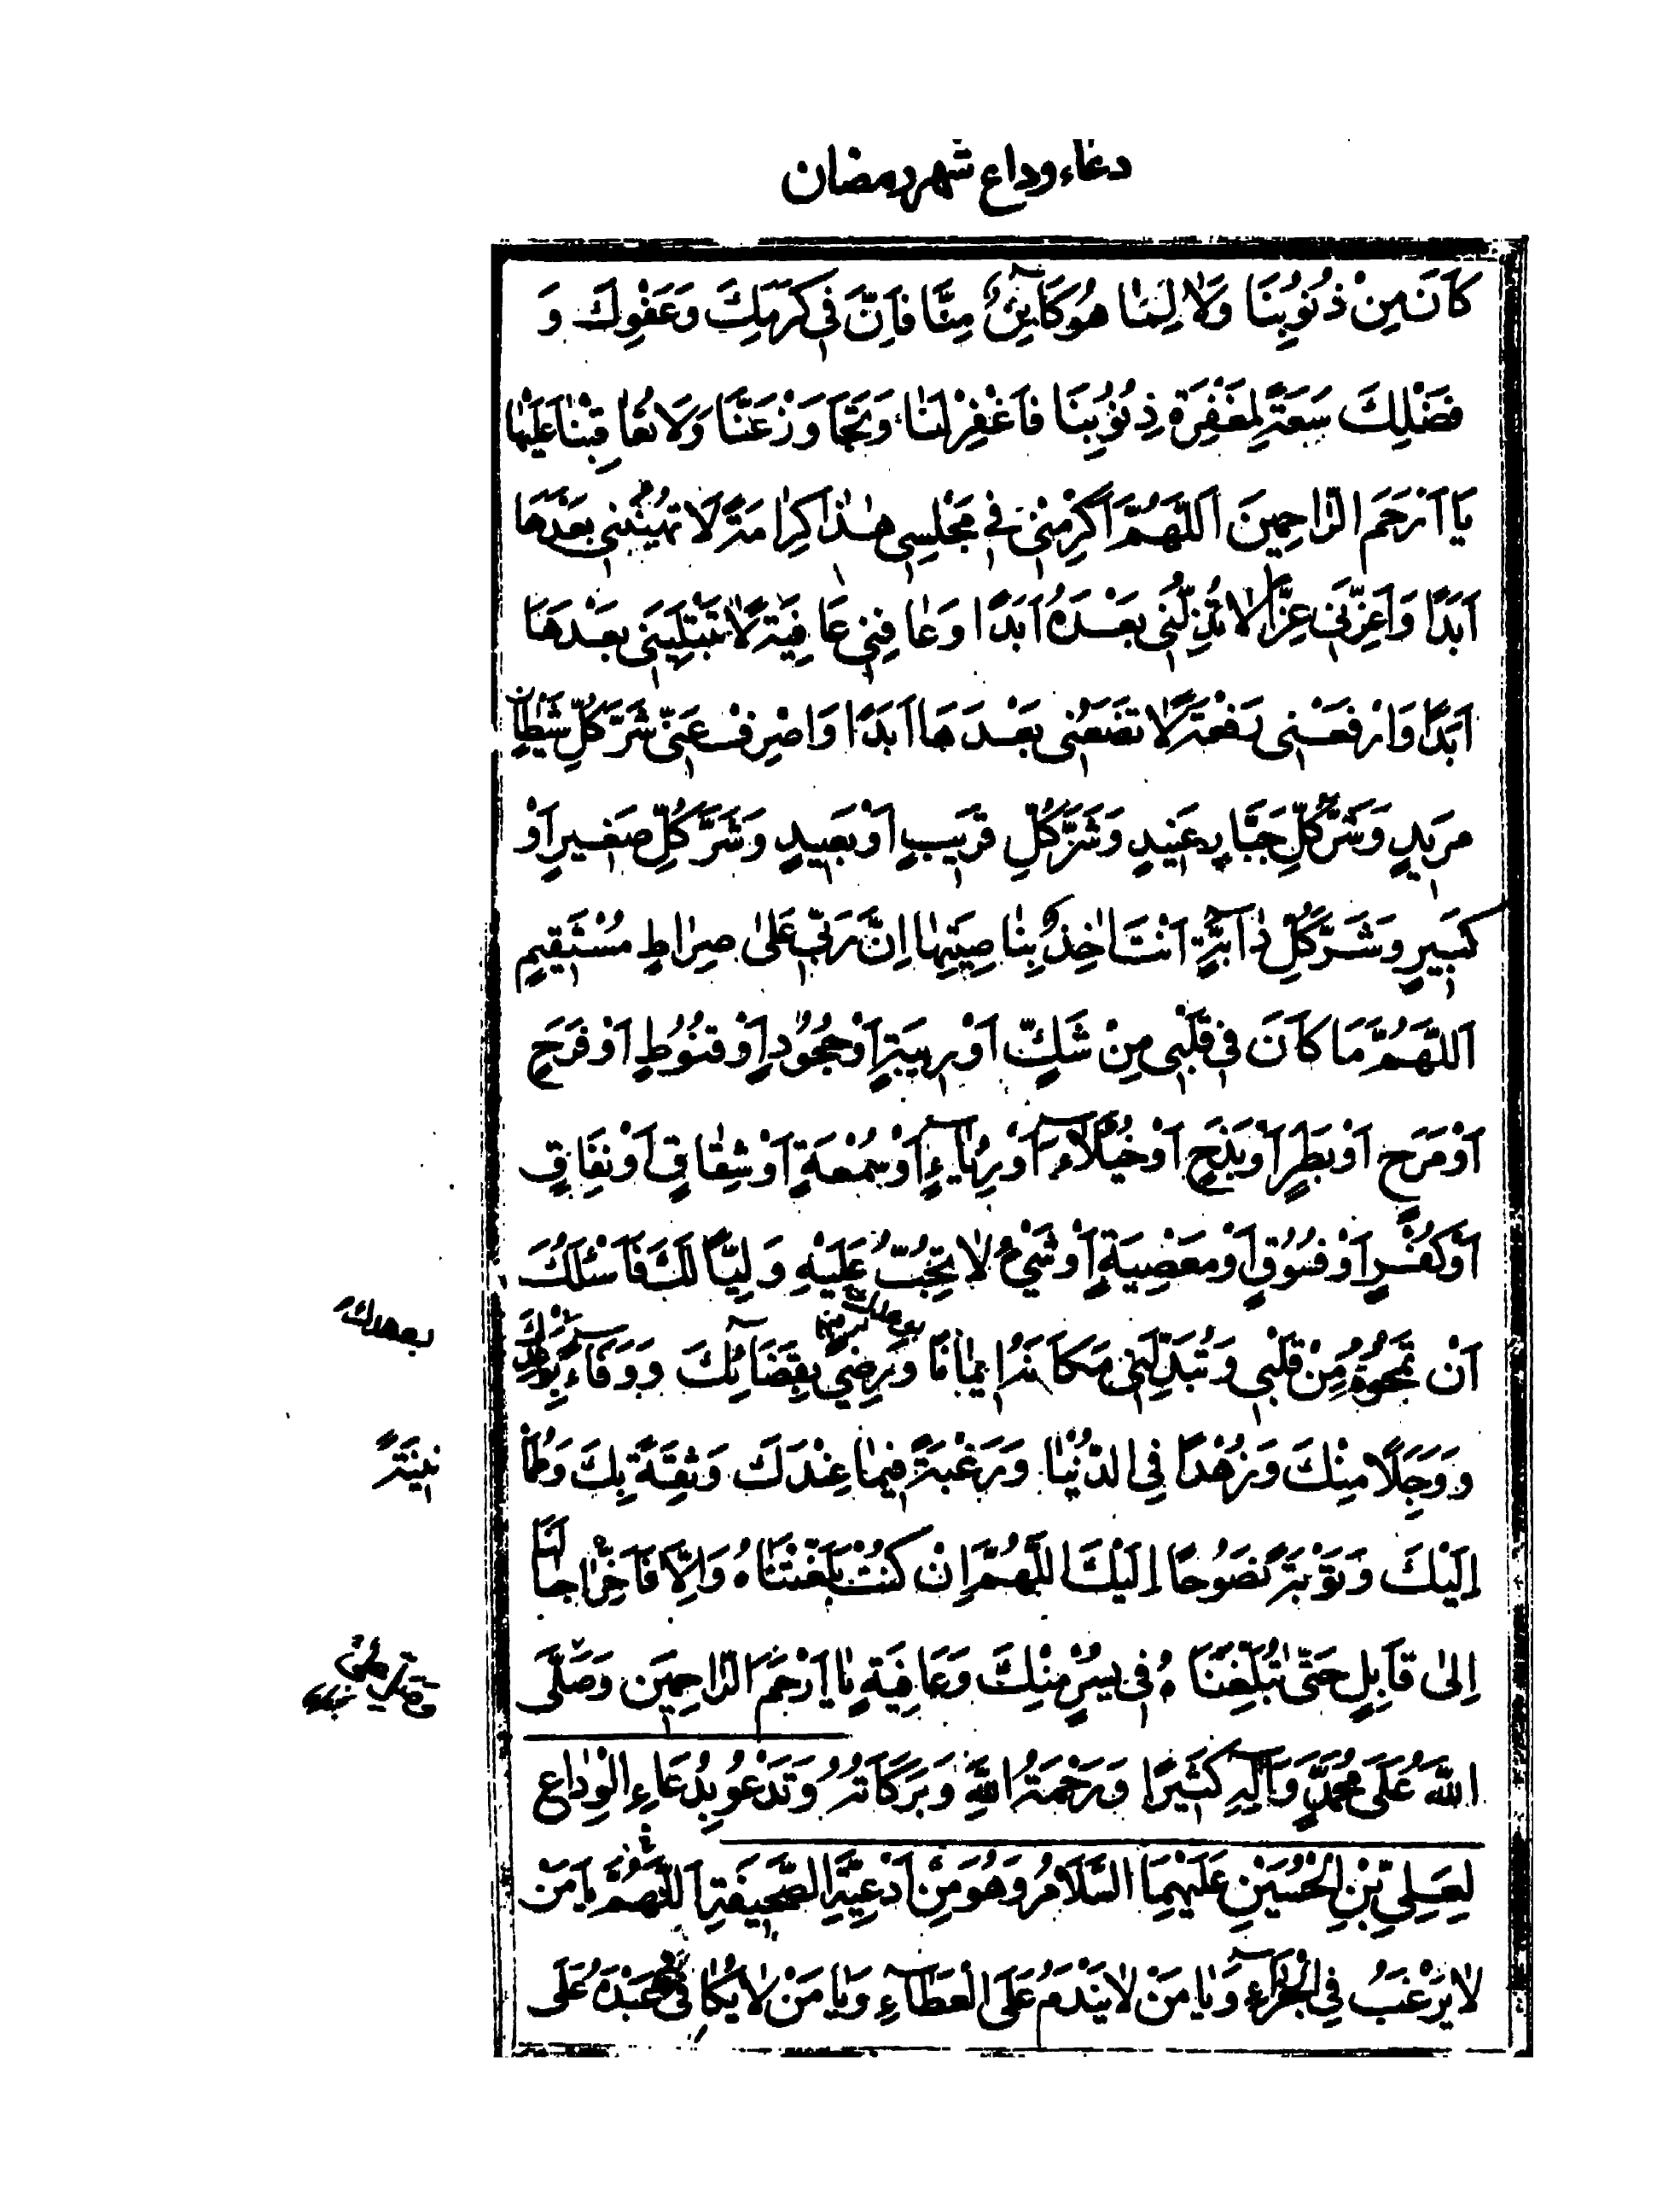 دعاء وداع شهر رمضان
كَانَ مِنْ ذُنُوبِنَا وَلَا لِمَا هُوَ كَآئِنٌ مِنَّا فَاِنَّ فِي كَرَمِكَ وَعَفْوِكَ وَ
فَضْلِكَ سَعَةً لِمَغْفِرَةِ ذُنُوبِنَا فَاغْفِرْ لَنَا وَتَجَاوَزْ عَنَّا وَلَا تُعَاقِبْنَا عَلَيْهَا
يَا اَرْحَمَ الرَّاحِمِينَ اَللّٰهُمَّ اَكْرِمْنِي فِي مَجْلِسِي هٰذَا كَرَامَةً لَا تُهِينُنِي بَعْدَهَا
اَبَدًا وَاَعِزَّنِي عِزًّا لَا تُذِلُّنِي بَعْدَهُ اَبَدًا وَعَافِنِي عَافِيَةً لَا تَبْتَلِينِي بَعْدَهَا
اَبَدًا وَارْفَعْنِي رَفْعَةً لَا تَضَعُنِي بَعْدَهَا اَبَدًا وَاصْرِفْ عَنِّي شَرَّ كُلِّ شَيْطَانٍ
مَرِيدٍ وَشَرَّ كُلِّ جَبَّارٍ عَنِيدٍ وَشَرَّ كُلِّ قَرِيبٍ اَوْ بَعِيدٍ وَشَرَّ كُلِّ صَغِيرٍ اَوْ
كَبِيرٍ وَشَرَّ كُلِّ دَآبَّةٍ اَنْتَ اٰخِذٌ بِنَاصِيَتِهَا اِنَّ رَبِّي عَلٰى صِرَاطٍ مُسْتَقِيمٍ
اَللّٰهُمَّ مَا كَانَ فِي قَلْبِي مِنْ شَكٍّ اَوْ رِيبَةٍ اَوْ جُحُودٍ اَوْ قُنُوطٍ اَوْ فَرَحٍ
اَوْ مَرَحٍ اَوْ بَطَرٍ اَوْ بَذَخٍ اَوْ خُيَلَآءَ اَوْ رِيَآءٍ اَوْ سُمْعَةٍ اَوْ شِقَاقٍ اَوْ نِفَاقٍ
اَوْ كُفْرٍ اَوْ فُسُوقٍ اَوْ مَعْصِيَةٍ اَوْ شَيْءٍ لَا تُحِبُّ عَلَيْهِ وَلِيًّا لَكَ فَاَسْئَلُكَ
بعهدك
اَنْ تَمْحُوَهُ مِنْ قَلْبِي وَتُبَدِّلَنِي مَكَانَهُ اِيمَانًا وَرِضًى بِقَضَآئِكَ وَوَفَآءً بِوَعْدِكَ
وَوَجَلًا مِنْكَ وَزُهْدًا فِي الدُّنْيَا وَرَغْبَةً فِيمَا عِنْدَكَ وَثِقَةً بِكَ وَطُمَأْ
نِينَةً
اِلَيْكَ وَتَوْبَةً نَصُوحًا اِلَيْكَ اَللّٰهُمَّ اِنْ كُنْتَ بَلَّغْتَنَاهُ وَاِلَّا فَاَخِّرْ اٰجَالَنَا
اِلٰى قَابِلٍ حَتّٰى تُبَلِّغَنَاهُ فِي يُسْرٍ مِنْكَ وَعَافِيَةٍ يَا اَرْحَمَ الرَّاحِمِينَ وَصَلَّى
اللّٰهُ عَلَى مُحَمَّدٍ وَآلِهِ كَثِيرًا وَرَحْمَةُ اللّٰهِ وَبَرَكَاتُهُ وَتَدْعُو بِدُعَاءِ الْوِدَاعِ
لِعَلِيِّ بْنِ الْحُسَيْنِ عَلَيْهِمَا السَّلَامُ وَهُوَ مِنْ اَدْعِيَةِ الصَّحِيفَةِ اَللّٰهُمَّ يَا مَنْ
لَا يَرْغَبُ فِي الْجَزَآءِ وَيَا مَنْ لَا يَنْدَمُ عَلَى الْعَطَآءِ وَيَا مَنْ لَا يُكَافِي عَبْدَهُ عَلَى